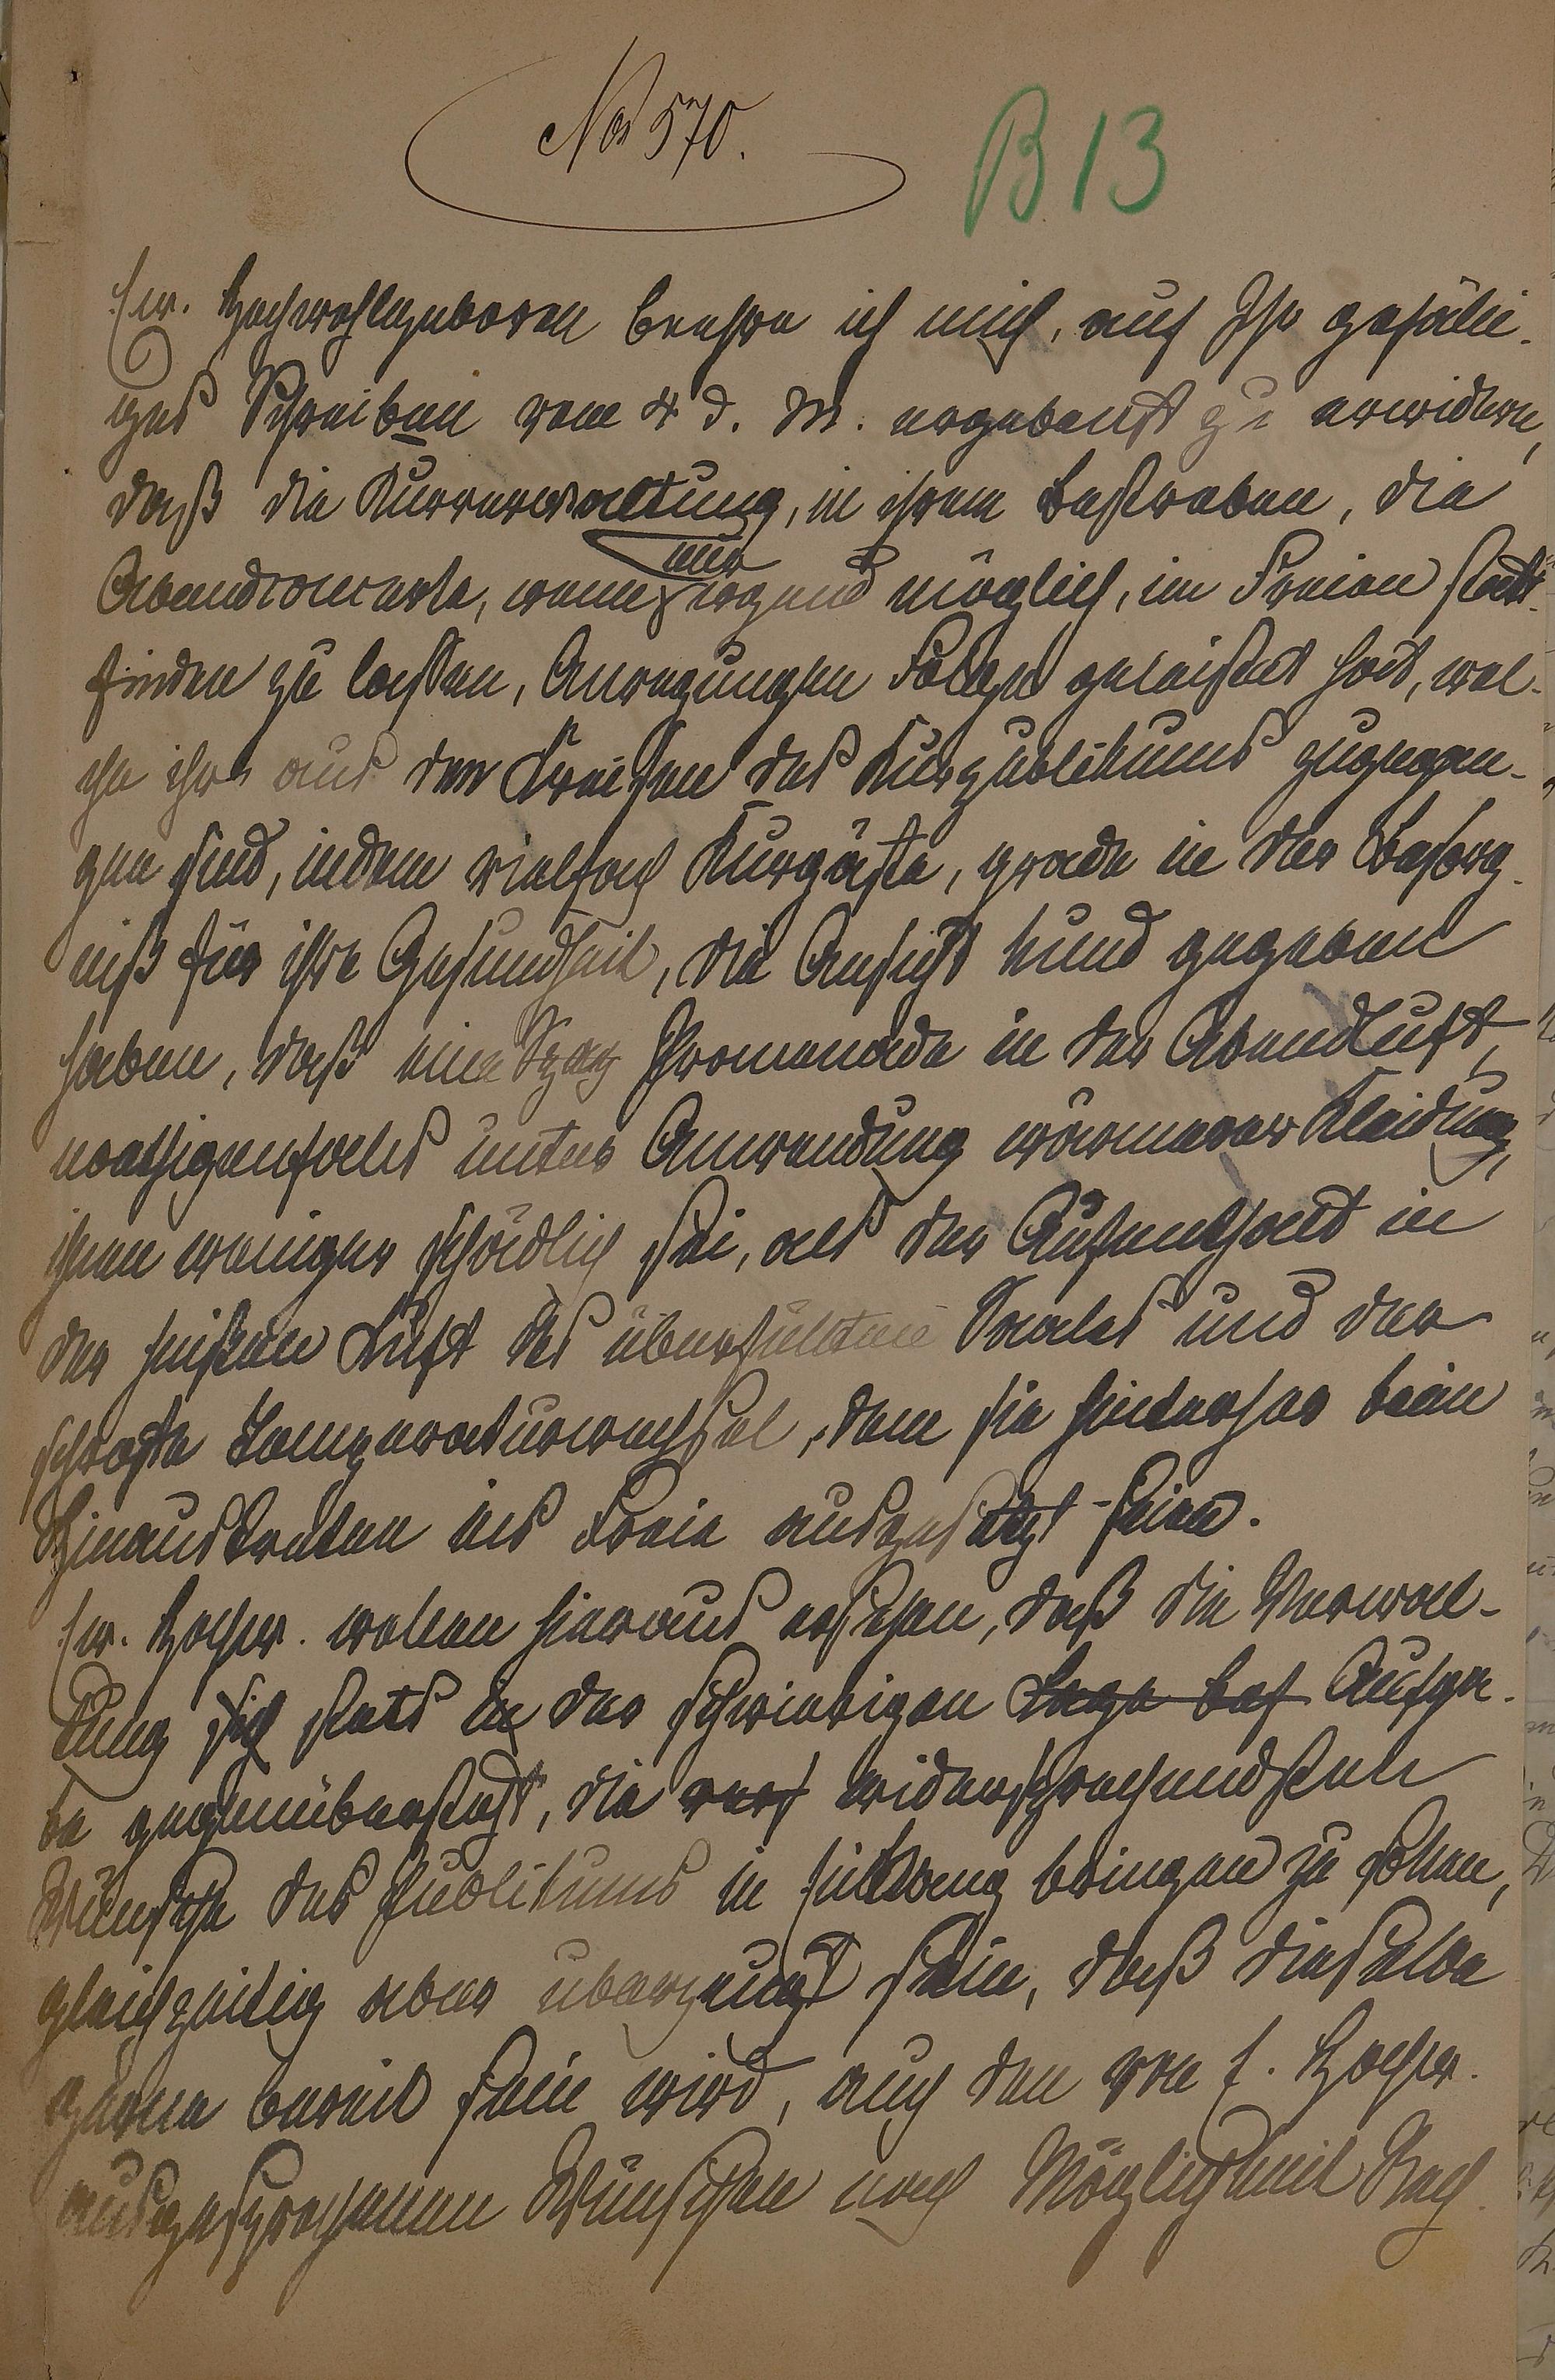 No 570.
B 13
Ew. Hochwohlgeboren beehre ich mich, auf Ihr gefälli-
ges Schreiben vom 4 d. M. ergebenst zu erwidern,
daß die Kurverwaltung, in ihrem Bestreben, die
Abendconcerte, wenn nur irgend möglich, im Freien statt-
finden zu lassen, Anregungen Folge geleistet hat, wel-
che ihr aus den Kreisen des Kurpublikums zugegan-
gen sind, indem vielfach Kurgäste, grade in der Besorg-
niß für ihre Gesundheit, die Ansicht kund gegeben
haben, daß eine Promenade in der Abendluft,
noethigenfalls unter Anwendung wärmerer Kleidung,
ihnen weniger schädlich sei, als der Aufenthalt in
der heißen Luft des überfüllten Saales und der
schroffe Temperaturwechsel, dem sie hinterher beim
Hinaustreten ins Freie ausgesetzt seien.
Ew. Hochw. wollen hieraus ersehen, daß die Verwal-
tung sich stets in der schwierigen Lage bef Aufga-
be gegenübersteht, die widersprechendsten
Wünsche des Publikums in Einklang bringen zu sollen,
gleichzeitig aber überzeugt sein, daß dieselbe
gerne bereit sein wird, auch den von E. Hochw.
ausgesprochenen Wünschen nach Möglichkeit Rech-